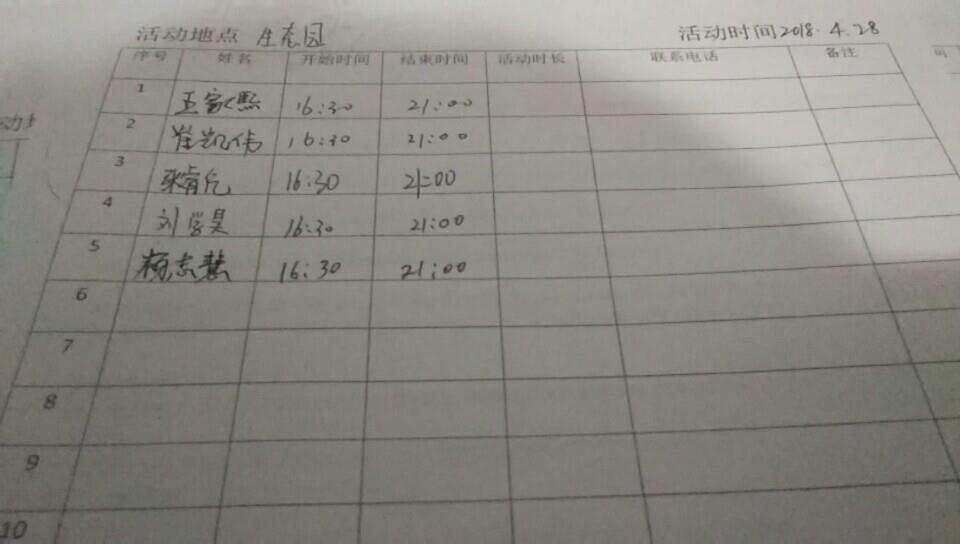 活动地点 生态园 活动时间 2018.4.28
序号 姓名 开始时间 结束时间 活动时长 联系电话 备注
1 王家熙 16:30 21:00
2 崔凯伟 16:30 21:00
3 16:30 21:00
4 刘学昊 16:30 21:00
5 杨志慧 16:30 21:00
6
7
8
9
10